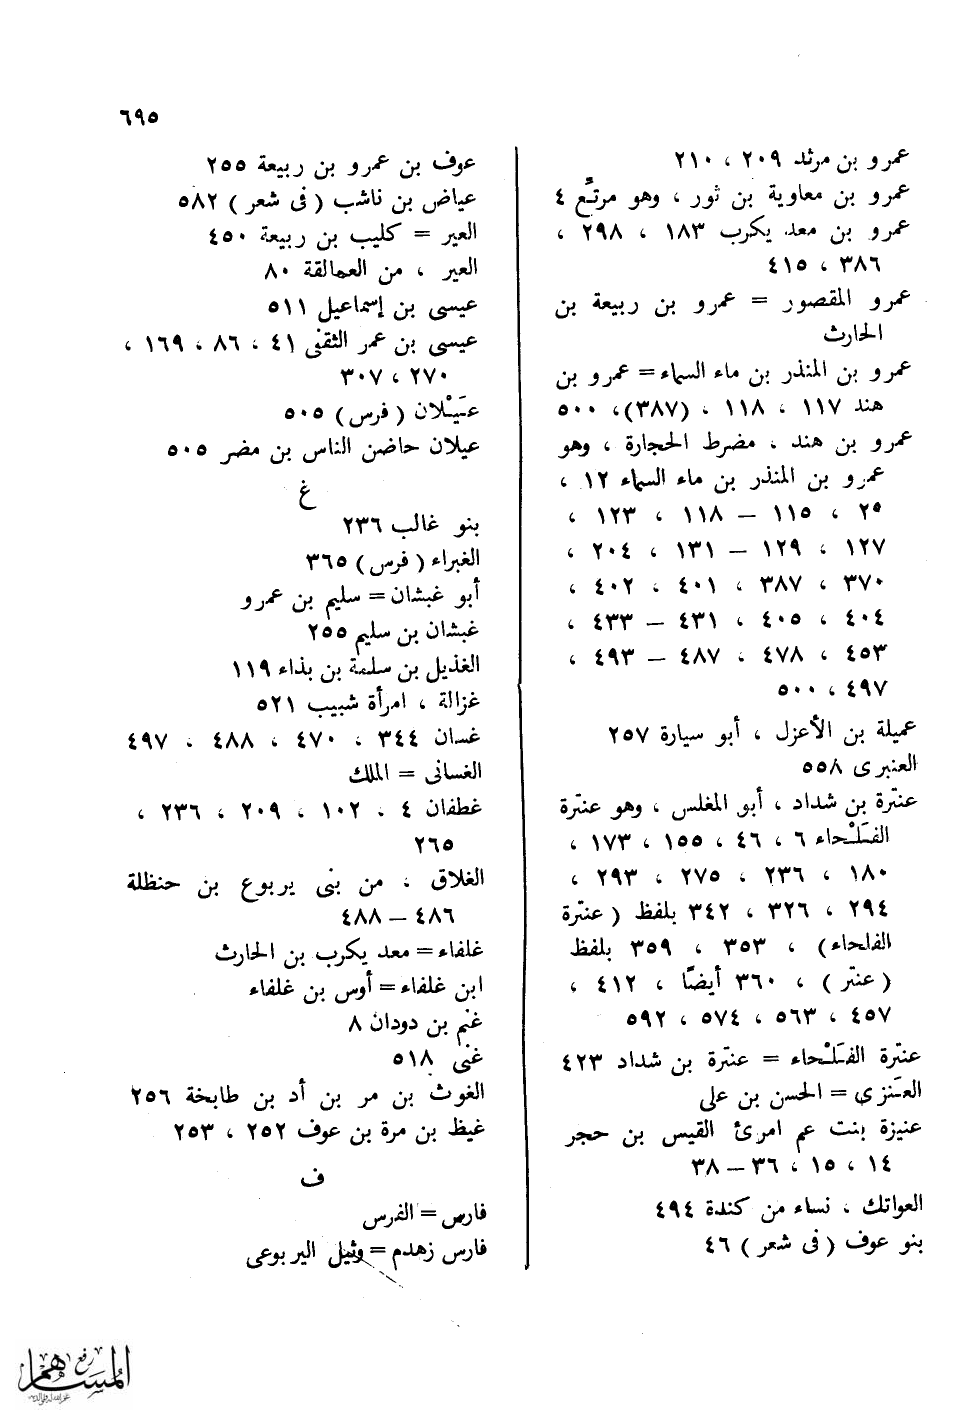 ٦٩٥
عمرو بن مرثد ٢٠٩ ، ٢١٠
عمرو بن معاوية بن ثور ، وهو مرتِّع ٤
عمرو بن معد يكرب ١٨٣ ، ٢٩٨ ،
٣٨٦ ، ٤١٥
عمرو المقصور = عمرو بن ربيعة بن
الحارث
عمرو بن المنذر بن ماء السماء = عمرو بن
هند ١١٧ ، ١١٨ ، (٣٨٧)، ٥٠٠
عمرو بن هند ، مضرط الحجارة ، وهو
عمرو بن المنذر بن ماء السماء ١٢ ،
٢٥ ، ١١٥ – ١١٨ ، ١٢٣ ،
١٢٧ ، ١٢٩ – ١٣١ ، ٢٠٤ ،
٣٧٠ ، ٣٨٧ ، ٤٠١ ، ٤٠٢ ،
٤٠٤ ، ٤٠٥ ، ٤٣١ – ٤٣٣ ،
٤٥٣ ، ٤٧٨ ، ٤٨٧ – ٤٩٣ ،
٤٩٧ ، ٥٠٠
عميلة بن الأعزل ، أبو سيارة ٢٥٧
العنبرى ٥٥٨
عنترة بن شداد ، أبو المغلس ، وهو عنترة
الفَلْحاء ٦ ، ٤٦ ، ١٥٥ ، ١٧٣ ،
١٨٠ ، ٢٣٦ ، ٢٧٥ ، ٢٩٣ ،
٢٩٤ ، ٣٢٦ ، ٣٤٢ بلفظ ( عنترة
الفلحاء) ، ٣٥٣ ، ٣٥٩ بلفظ
( عنتر ) ، ٣٦٠ أيضًا ، ٤١٢ ،
٤٥٧ ، ٥٦٣ ، ٥٧٤ ، ٥٩٢
عنترة الفَلْحاء = عنترة بن شداد ٤٢٣
العَنزي = الحسن بن على
عنيزة بنت عم امرئ القيس بن حجر
١٤ ، ١٥ ، ٣٦ – ٣٨
العواتك ، نساء من كندة ٤٩٤
بنو عوف ( فى شعر ) ٤٦
عوف بن عمرو بن ربيعة ٢٥٥
عياض بن ناشب ( فى شعر ) ٥٨٢
العير = كليب بن ربيعة ٤٥٠
العير ، من العمالقة ٨٠
عيسى بن إسماعيل ٥١١
عيسى بن عمر الثقفى ٤١ ، ٨٦ ، ١٦٩ ،
٢٧٠ ، ٣٠٧
عَيْلان ( فرس ) ٥٠٥
عيلان حاضن الناس بن مضر ٥٠٥
غ
بنو غالب ٢٣٦
الغبراء ( فرس ) ٣٦٥
أبو غبشان = سليم بن عمرو
غبشان بن سليم ٢٥٥
الغذيل بن سلمة بن بذاء ١١٩
غزالة ، امرأة شبيب ٥٢١
غسان ٣٤٤ ، ٤٧٠ ، ٤٨٨ ، ٤٩٧
الغسانى = الملك
غطفان ٤ ، ١٠٢ ، ٢٠٩ ، ٢٣٦ ،
٢٦٥
الغلاق ، من بنى يربوع بن حنظلة
٤٨٦ – ٤٨٨
غلفاء = معد يكرب بن الحارث
ابن غلفاء = أوس بن غلفاء
غنْم بن دودان ٨
غنى ٥١٨
الغوث بن مر بن أد بن طابخة ٢٥٦
غيظ بن مرة بن عوف ٢٥٢ ، ٢٥٣
ف
فارس = الفرس
فارس زهدم = وثيل اليربوعى
رفع
المساهم